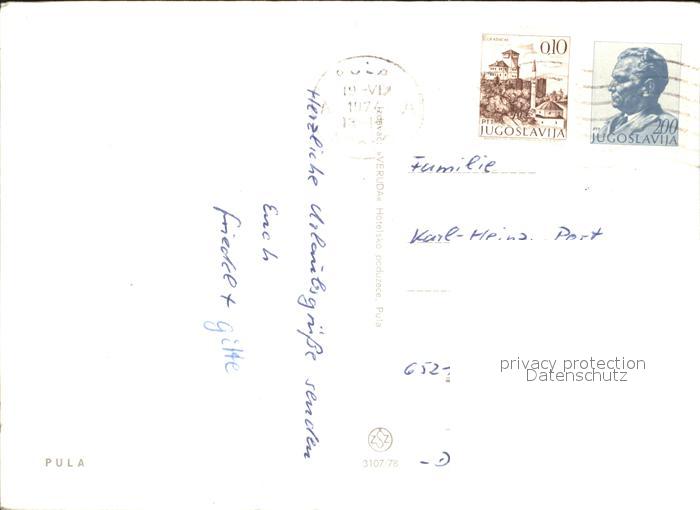 Herzliche Urlaubsgrüße senden
Euch
Friedel + Gitte
PULA
Izdavač: »VERUDA« Hotelsko poduzeće, Pula
3107/78
PULA
19-VI
1974
0,10
PTT
JUGOSLAVIJA
2.00
JUGOSLAVIJA
Familie
Karl-Heinz Port
652-
-D
privacy protection
Datenschutz